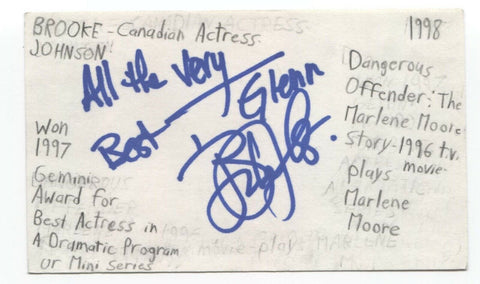 BROOKE - Canadian Actress
JOHNSON
1998
All the very
Best
Glenn
Won
1997
Gemini
Award for
Best Actress in
A Dramatic Program
or Mini Series
Dangerous
Offender: The
Marlene Moore
Story - 1996 t.v.
movie -
plays
Marlene
Moore